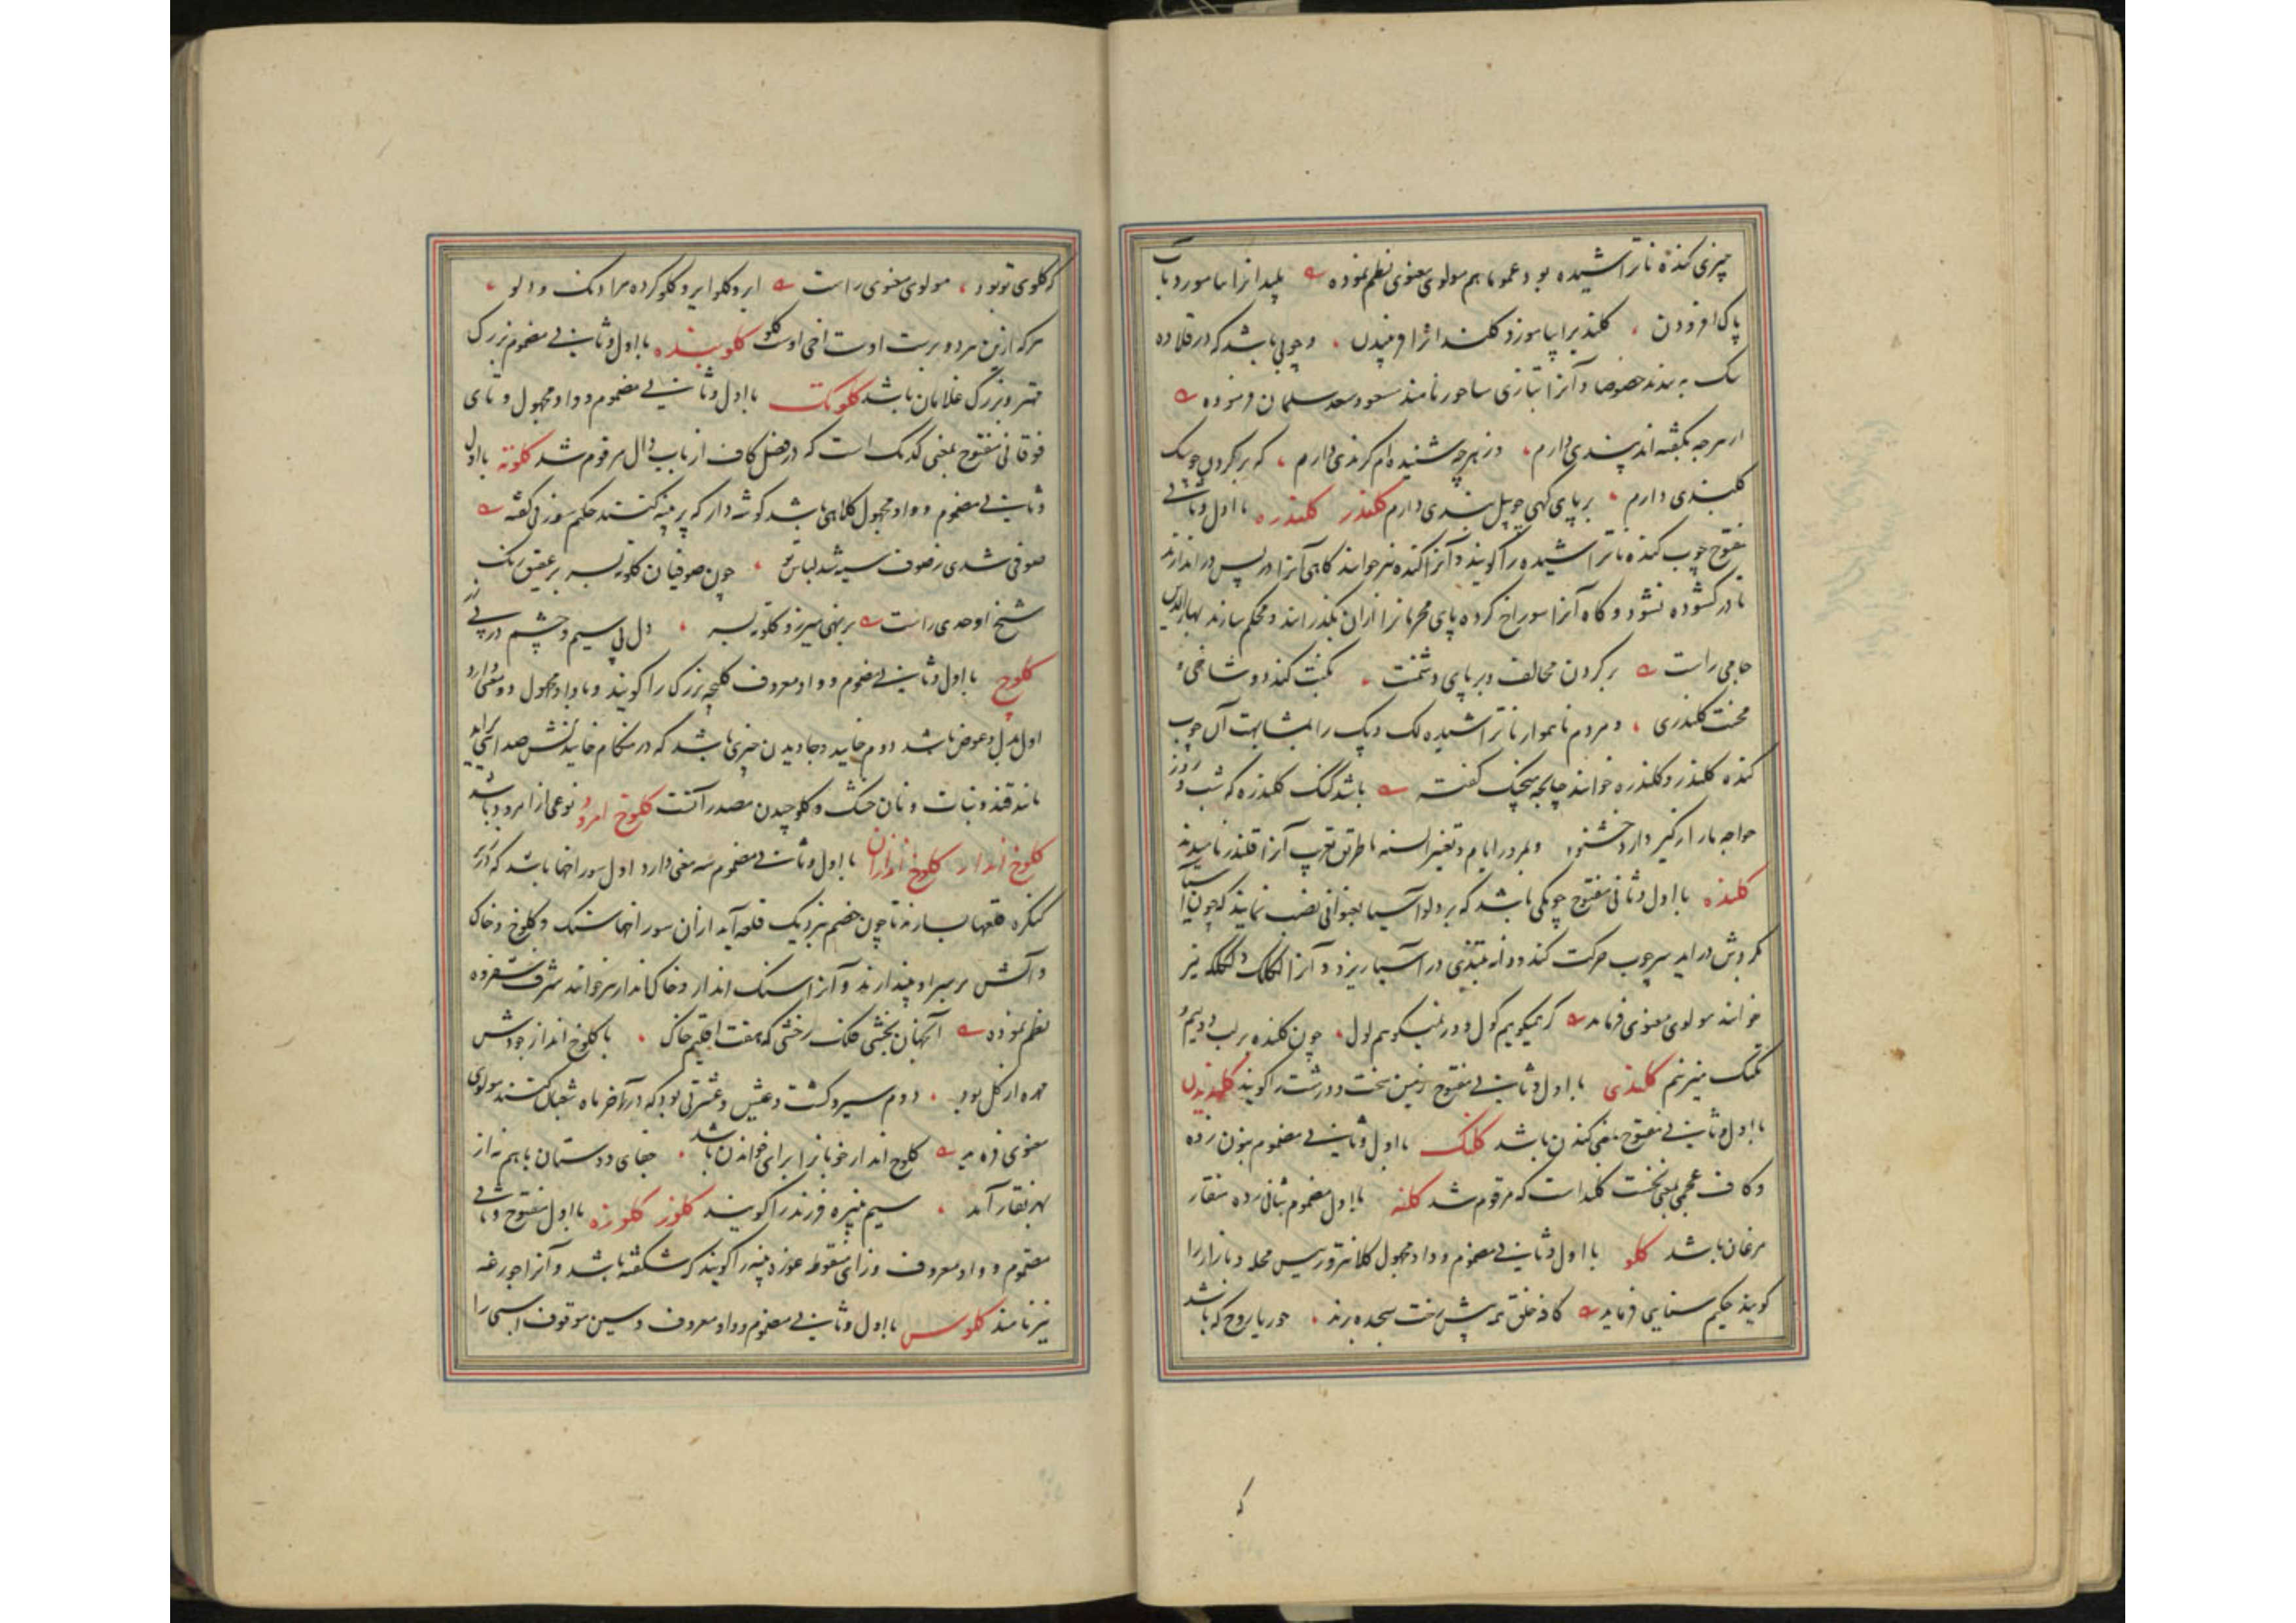 چیزی کنده ناتراشیده بود عموما هم مولوی معنوی نظم نموده پلیدانرا بیاموزد باب
پاک افزودن کلند برا بیاموزد کلند انرا و چوبی باشد که در قلاده
سک به بندند خصوصا و آنرا بتازی ساجور نامند مسعود سعد سلمان فرموده
از هرچه بگفته اند پندی دارم وز هرچه شنیده ام گزندی دارم که بر گردن چو سک
کلندی دارم بر پای گهی چو پیل بندی دارم کلندر کلندره با اول و ثانی
مفتوح چوب کنده ناتراشیده را گویند و آنرا کنده نیز خوانند گاهی آنرا در پس در اندازند
تا در گشوده نشود و گاه آنرا سوراخ کرده پای مجرمانرا ازان بگذرانند و محکم سازند بهاءالدین
جامی راست بر گردن مخالف و بر پای دشمنت نکبت کند دوشاخی و
محنت کلندری و مردم ناهموار ناتراشیده لک و پک را بمشابهت آن چوب
کنده کلندر و کلندره خوانند چنانچه گفته باشد کنگ کلندره که شب و روز
خواجه بمرور ایام و تغیر السنه بطریق تعریب آنرا قلندر نامیدند
کلنده با اول و ثانی مفتوح چوبکی باشد که بر دلو آسیا بعنوانی نصب نمایند که چون آسیا
بگردش در اید سر چوب حرکت کند و دانه بتدریج در آسیا ریزد و آنرا لکلک و لکلکه نیز
خوانند مولوی معنوی فرماید گر نمیگویم گول ور نمیگویم لول چون کلنده بر لب دولیم و
تکتک میزنم کلندی با اول و ثانی مفتوح زمین سخت و درشت را گویند کلندیدن
با اول و ثانی مفتوح بمعنی کندن باشد کلنگ با اول و ثانی مضموم بنون زده
و کاف عجمی بمعنی نخست کلند است که مرقوم شد کلنه با اول مضموم بثانی زده منقار
مرغان باشد کلو با اول و ثانی مضموم و واو مجهول کلانتر و رییس محله و بازار را
گویند حکیم سنایی فرماید کاذ خلق پیش رخت سجده برند حور یا روح که باشد
که
که کلوی تو بود مولوی معنوی راست ایردکلو ایردکلو کرده مرا دنک و دلو
هرکه ازین هر دو برست اوست اخی اوست کلو کلوبنده با اول و ثانی مضموم بزرگ
مهتر و بزرگ غلامان باشد کلوتک با اول و ثانی مضموم و واو مجهول و تای
فوقانی مفتوح بمعنی کدنک است که در فصل کاف از باب دال مرقوم شد کلوته با اول
و ثانی مضموم و واو مجهول کلاهی باشد گوشه دار که پر پنبه کنند حکیم سوزنی گفته
صوفی شدی ز صوف سیه شد لباس تو چون صوفیان کلوته بسر بر عقیق رنک
شیخ اوحدی راست برنهی میزر و کلوته بسر دل پی سیم و چشم در پی زر
کلوچ با اول و ثانی مضموم و واو معروف کلیچه بزرک را گویند و با واو مجهول دو معنی دارد
اول بدل و عوض باشد دوم خایید و جاویدن چیزی باشد که در هنگام خاییدنش صدایی براید
مانند قند و نبات و نان خشک و کلوچیدن مصدر آنست کلوخ امرود نوعی از امرود باشد
کلوخ انداز کلوخ اندازان با اول و ثانی مضموم سه معنی دارد اول سوراخها باشد که در زیر
کنگره قلعها بسازند تا چون خصم نزدیک قلعه آید ازان سوراخها سنک و کلوخ و خاک
و آتش بر سر او بیندازند و آنرا سنک انداز و خاک انداز نیز خوانند شرف شفروه
نظم نموده آنچنان بخشی فلک رخشی که هفت اقلیم خاک با کلوخ انداز جودش
مهره از گل بود دوم سیر و کشت و عیش و عشرتی بود که در آخر ماه شعبان کنند مولوی
معنوی فرماید کلوخ انداز خوبانرا برای خواندن باشد جفای دوستان با هم نه از
بهر نقار آمد سیم پنبره فرزند را گویند کلوز کلوزه با اول مفتوح و ثانی
مضموم و واو معروف و زای منقوطه غوزه پنبه را گویند که شکفته باشد و آنرا جوزغه
نیز نامند کلوس با اول و ثانی مضموم و واو معروف و سین موقوف اسبی را